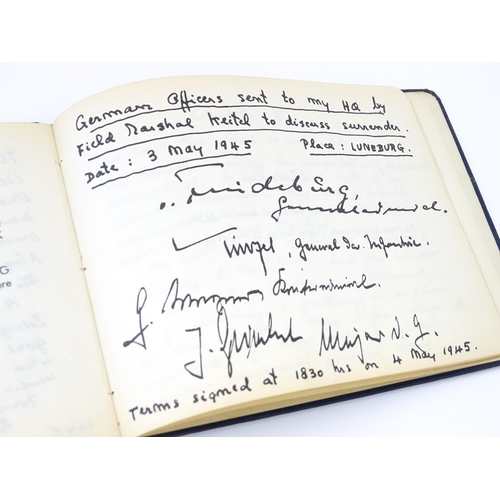 German Officers sent to my HQ by
Field Marshal Keitel to discuss surrender.
Date: 3 May 1945 Place: LUNEBURG.
Friedeburg,
Generaladmiral.
Kinzel, General der Infanterie.
G. Konteradmiral.
J. Major i. G.
Terms signed at 1830 hrs on 4 May 1945.
G
re